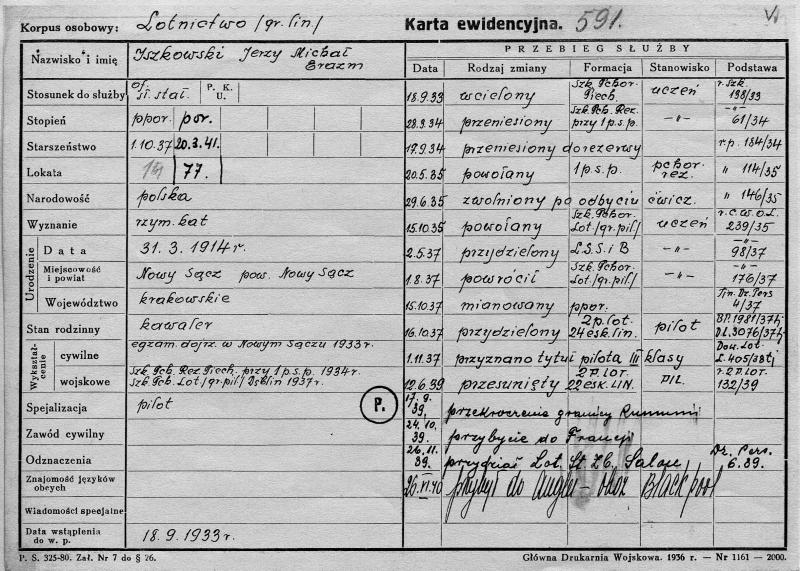 Korpus osobowy: Lotnictwo /gr. lin./ Karta ewidencyjna. 591.
Nazwisko i imię Iszkowski Jerzy Michał Erazm
Stosunek do służby of. sł. stał. P. K. U.
Stopień ppor. por.
Starszeństwo 1.10.37 20.3.41.
Lokata 77.
Narodowość polska
Wyznanie rzym. kat
Urodzenie
Data 31. 3. 1914 r.
Miejscowość i powiat Nowy Sącz pow. Nowy Sącz
Województwo krakowskie
Stan rodzinny kawaler
Wykształcenie
cywilne egzam. dojrz. w Nowym Sączu 1933 r.
wojskowe Szk. Pch. Rez. Piech. przy 1 p.s.p. 1934 r.
Szk. Pch. Lot. /gr. pil/ Dęblin 1937 r.
Spejalizacja pilot P.
Zawód cywilny
Odznaczenia
Znajomość języków obcych
Wiadomości specjalne
Data wstąpienia do w. p. 18. 9. 1933 r.
PRZEBIEG SŁUŻBY
Data Rodzaj zmiany Formacja Stanowisko Podstawa
18.9.33 wcielony Szk. Pchor. Piech. uczeń r. szk. 198/33
28.3.34 przeniesiony Szk. Pch. Rez. przy 1 p.s.p. -„- -„- 61/34
17.9.34 przeniesiony do rezerwy r.p. 184/34
20.5.35 powołany 1 p.s.p. pchor. rez. „ 114/35
29.6.35 zwolniony po odbyciu ćwicz. „ 146/35
15.10.35 powołany Szk. Pchor. Lot. /gr. pil/ uczeń r.C.W.O.L. 239/35
2.5.37 przydzielony L.S.S. i B -„- -„- 98/37
1.8.37 powrócił Szk. Pchor. Lot. /gr. pil/ -„- -„- 176/37
15.10.37 mianowany ppor. Dz. Pers 4/37
16.10.37 przydzielony 2 p. lot. 24 esk. lin. pilot BP. 1981/37tj D.L. 3076/37tj
1.11.37 przyznano tytuł pilota III klasy Dow. Lot. L. 405/38tj
12.6.39 przesunięty 2 P. LOT. 22 ESK. LIN. PIL. r. 2 p. LOT. 132/39
17.9.39. przekroczenie granicy Rumunii
24.10.39. przybycie do Francji
26.11.39. przydział Lot. St. Zb. Salon Dz. Pers. 6.39.
26.VI.40 przybył do Anglii - obóz Blackpool
P. S. 325-80. Zał. Nr 7 do § 26.
Główna Drukarnia Wojskowa. 1936 r. — Nr 1161 — 2000.